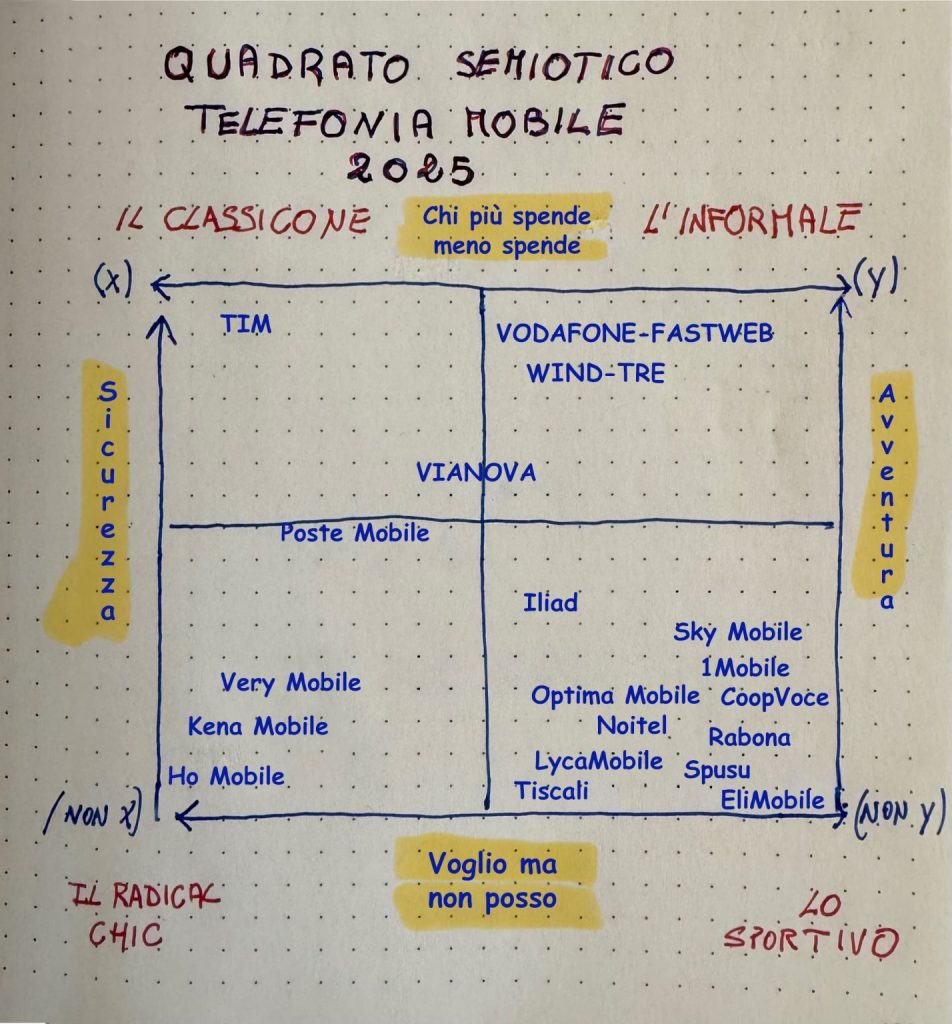 QUADRATO SEMIOTICO
TELEFONIA MOBILE
2025
IL CLASSICONE
Chi più spende
meno spende
L'INFORMALE
(X)
(Y)
TIM
VODAFONE-FASTWEB
WIND-TRE
Sicurezza
Avventura
VIANOVA
Poste Mobile
Iliad
Sky Mobile
1Mobile
Very Mobile
Optima Mobile
CoopVoce
Kena Mobile
Noitel
Rabona
LycaMobile
Spusu
Ho Mobile
Tiscali
EliMobile
(NON X)
(NON Y)
Voglio ma
non posso
IL RADICAL
CHIC
LO
SPORTIVO